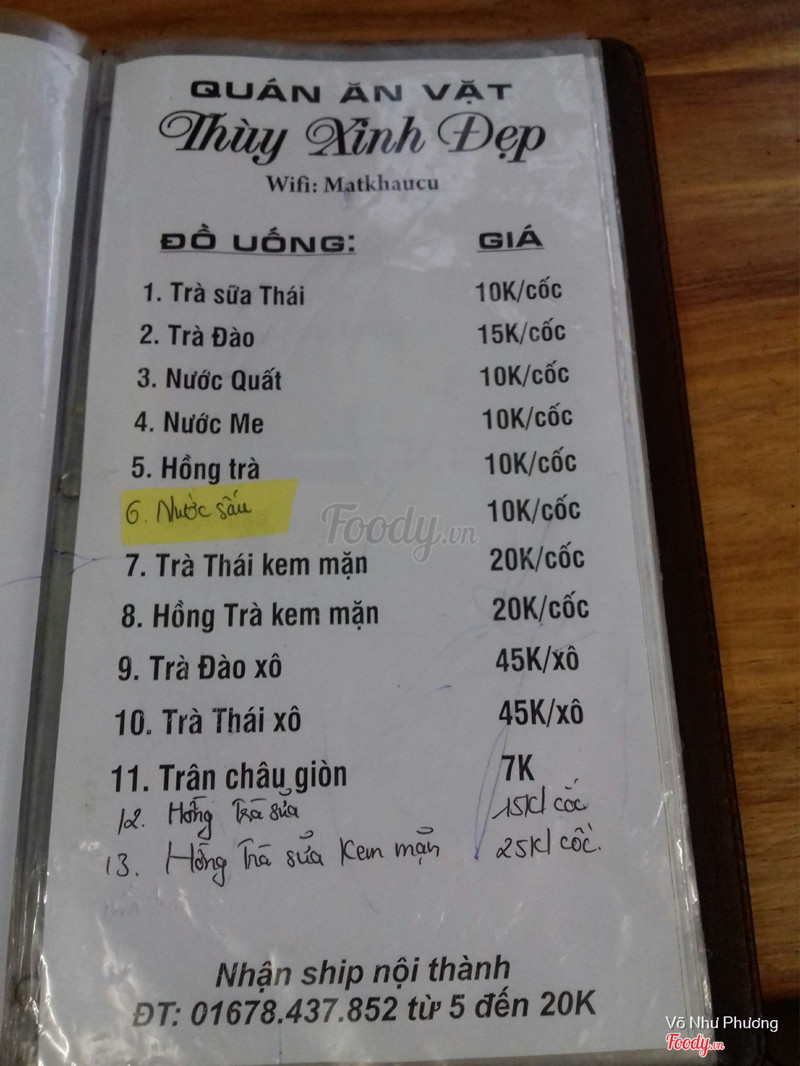 QUÁN ĂN VẶT
Thùy Xinh Đẹp
Wifi: Matkhaucu
ĐỒ UỐNG: GIÁ
1. Trà sữa Thái 10K/cốc
2. Trà Đào 15K/cốc
3. Nước Quất 10K/cốc
4. Nước Me 10K/cốc
5. Hồng trà 10K/cốc
6. Nước sấu 10K/cốc
Foody.vn
7. Trà Thái kem mặn 20K/cốc
8. Hồng Trà kem mặn 20K/cốc
9. Trà Đào xô 45K/xô
10. Trà Thái xô 45K/xô
11. Trân châu giòn 7K
12. Hồng Trà sữa 15K/cốc
13. Hồng Trà sữa Kem mặn 25K/cốc.
Nhận ship nội thành
ĐT: 01678.437.852 từ 5 đến 20K
Võ Như Phương
Foody.vn